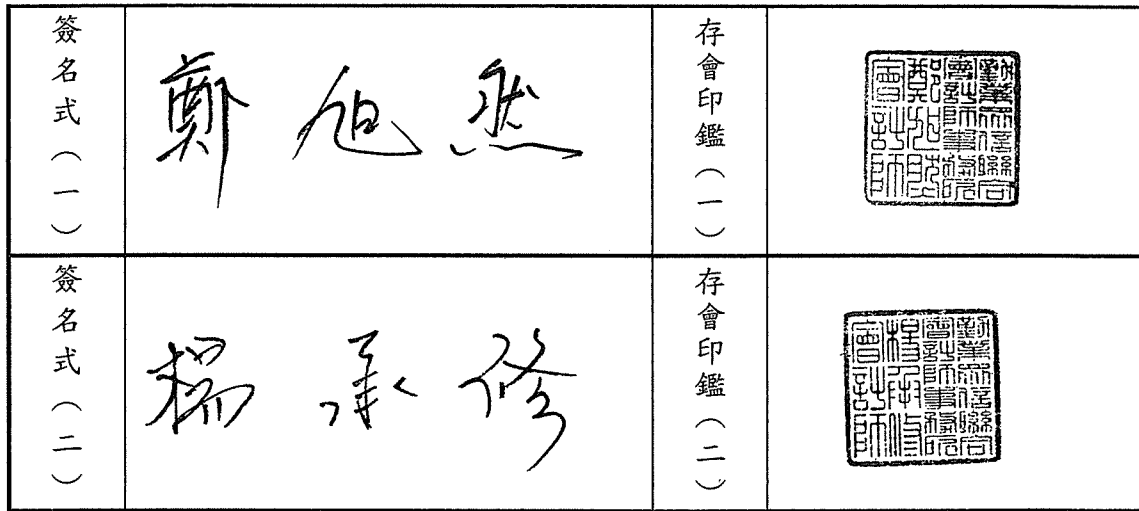 簽名式（一）
鄭旭然
存會印鑑（一）
勤業眾信聯合
會計師事務所
鄭旭然
會計師
簽名式（二）
楊承修
存會印鑑（二）
勤業眾信聯合
會計師事務所
楊承修
會計師